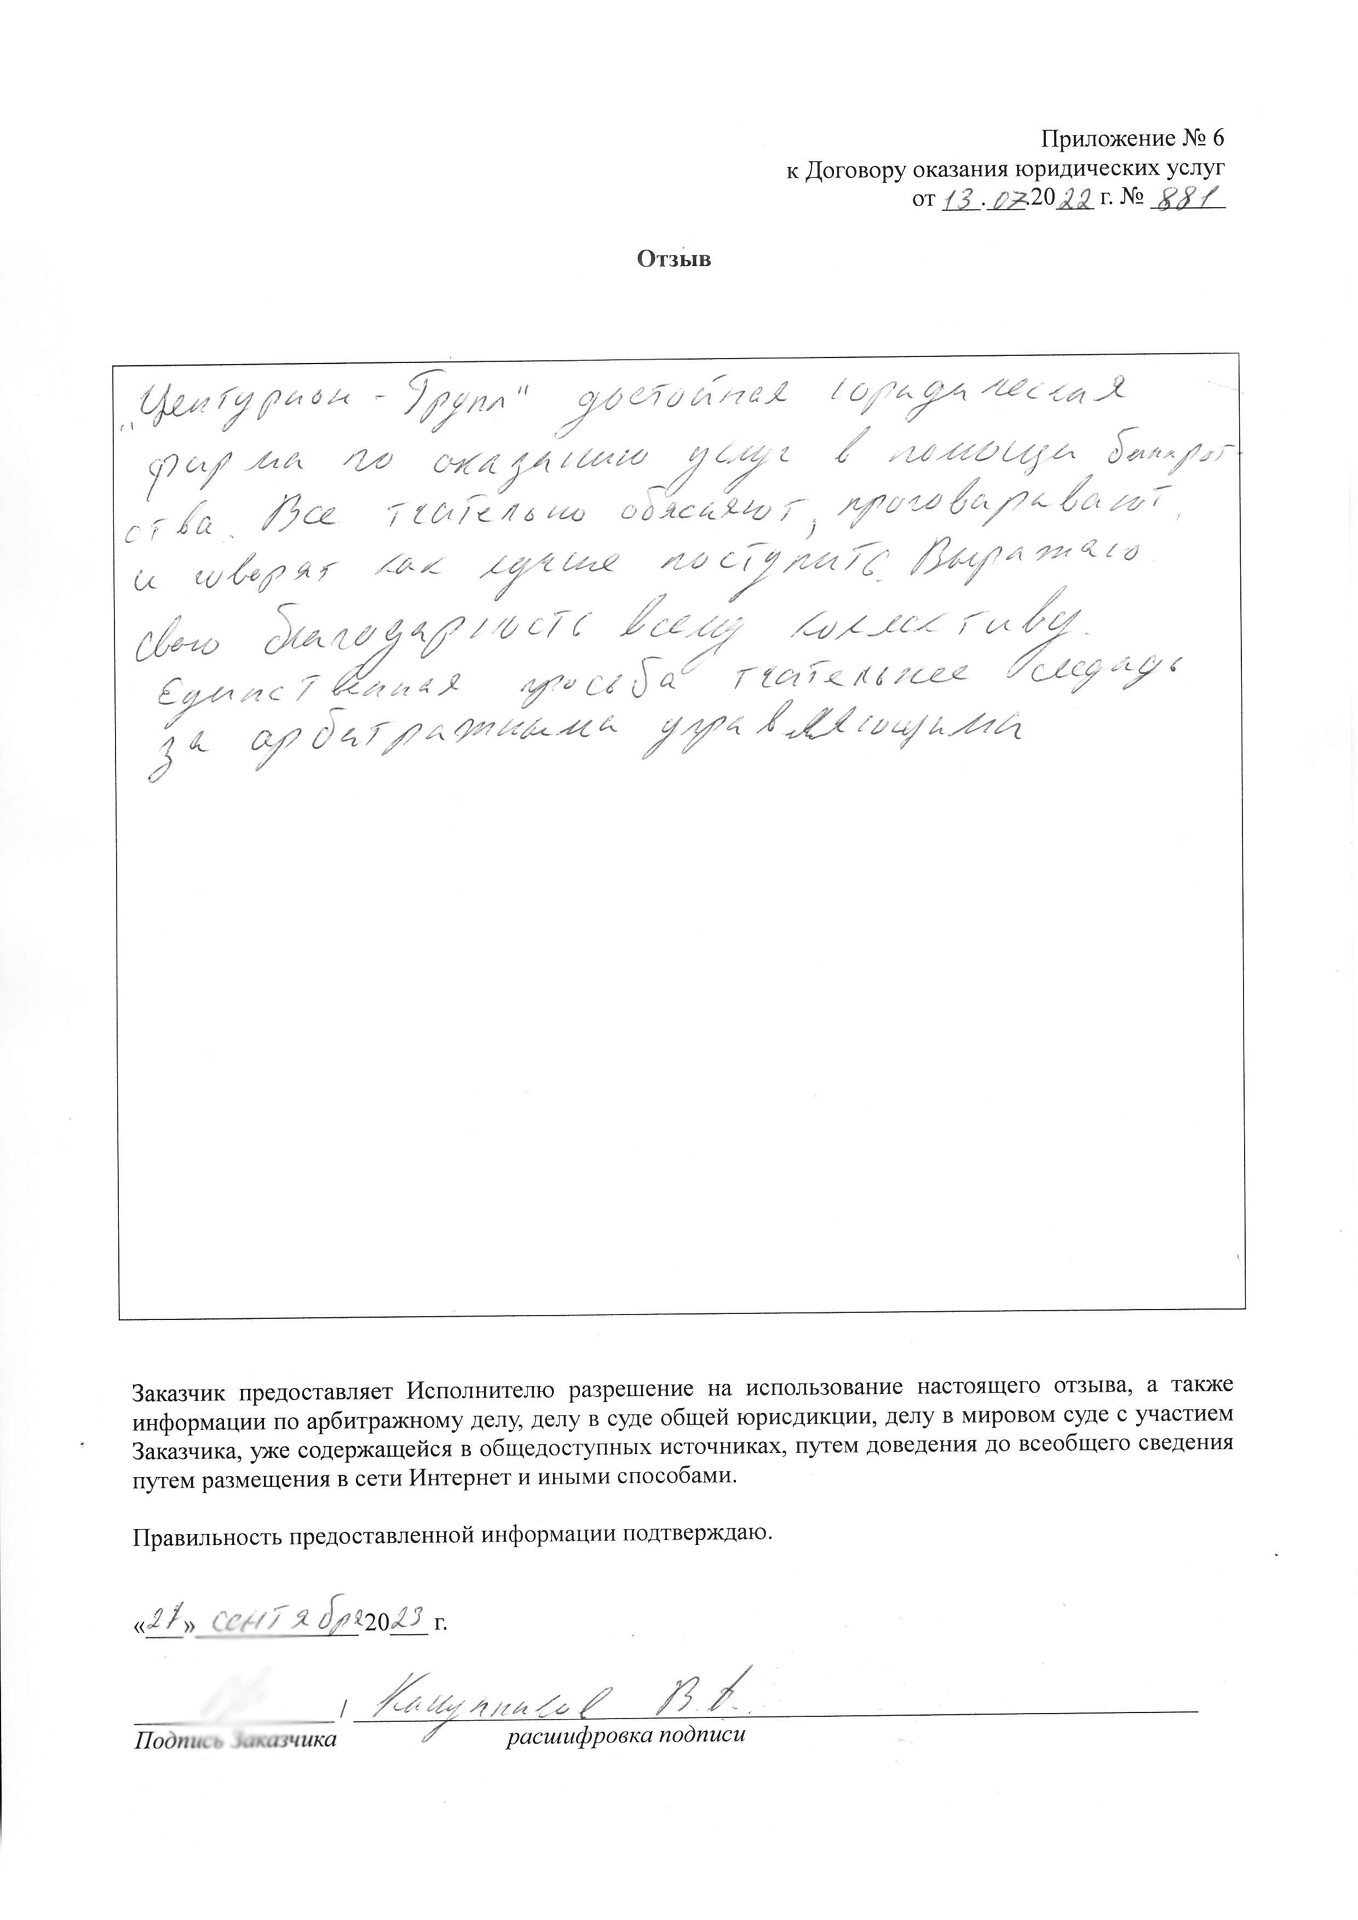 Приложение № 6
к Договору оказания юридических услуг
от 13.07.2022 г. № 881
Отзыв
„Центурион - Групп" достойная юридическая
фирма по оказанию услуг в помощи банкрот-
ства. Все тчательно обясняют, проговаривают,
и говорят как лучше поступить. Выражаю
свою благодарность всему колективу.
Единственная просьба тчательнее следидь
за арбитражными управляющими
Заказчик предоставляет Исполнителю разрешение на использование настоящего отзыва, а также
информации по арбитражному делу, делу в суде общей юрисдикции, делу в мировом суде с участием
Заказчика, уже содержащейся в общедоступных источниках, путем доведения до всеобщего сведения
путем размещения в сети Интернет и иными способами.
Правильность предоставленной информации подтверждаю.
«27» сентября 2023 г.
/ В.А.
Подпись Заказчика расшифровка подписи